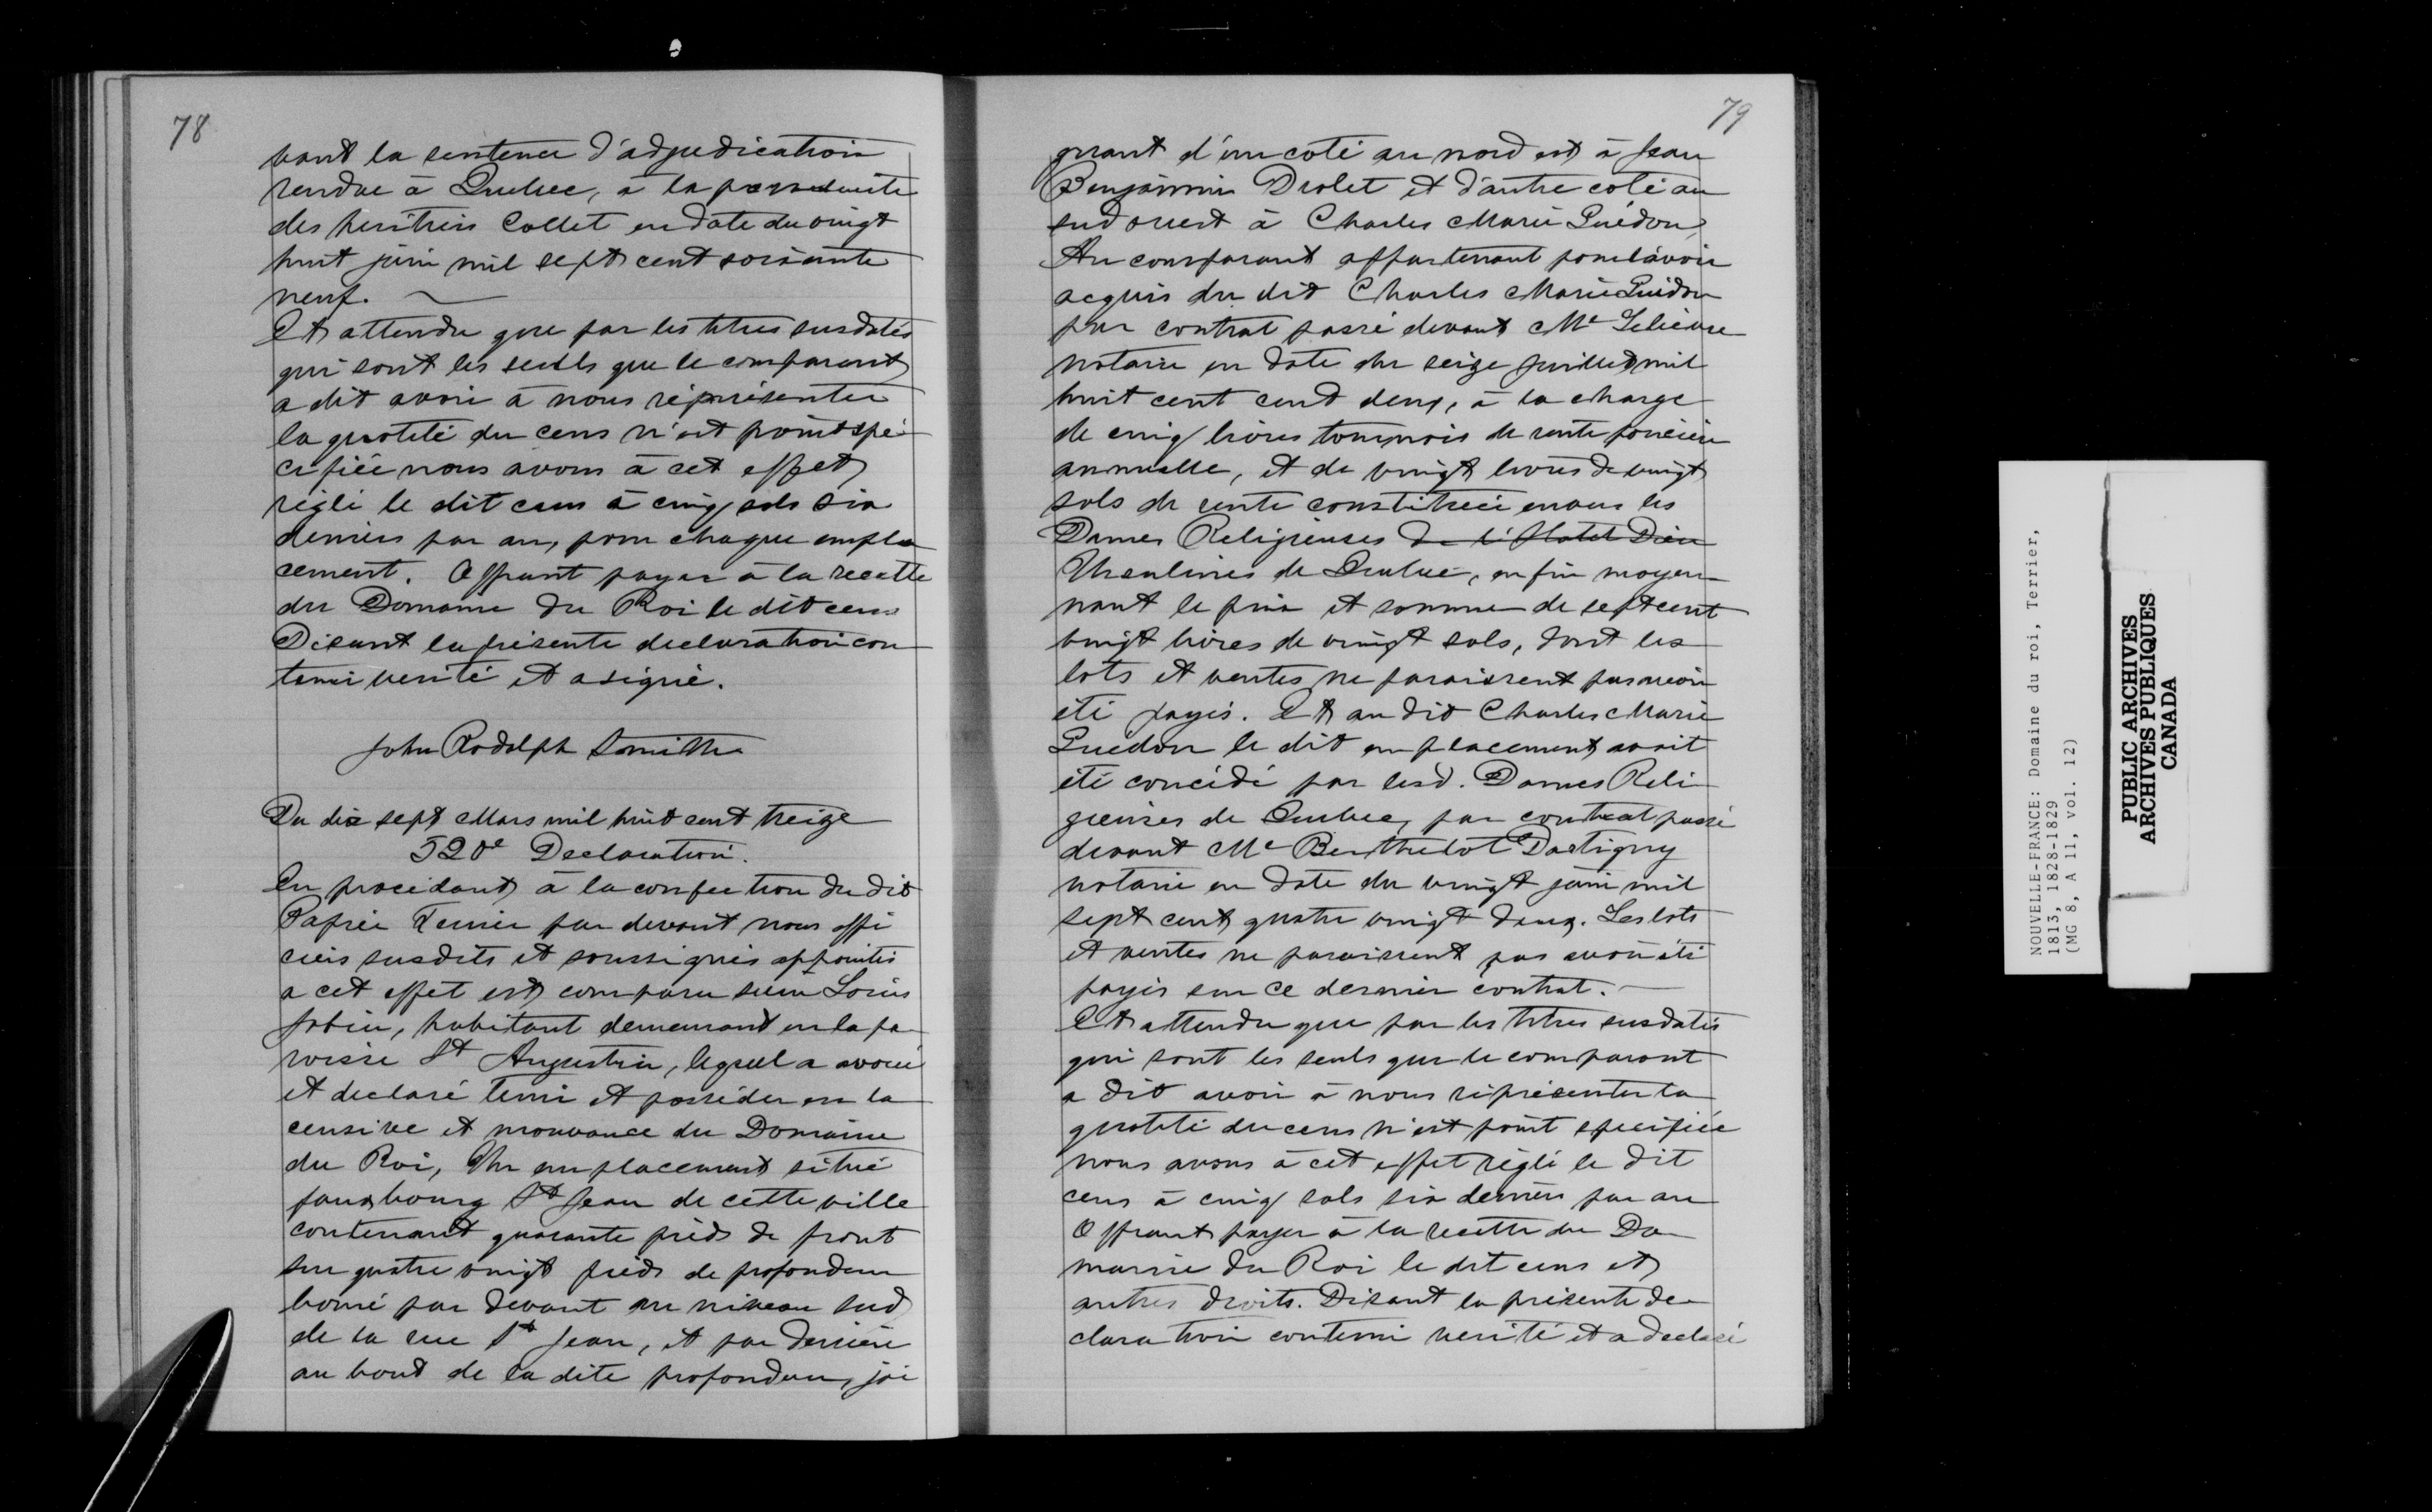 78
vant la sentence d'adjudication
rendue à Quebec, à la poursuite
des heritiers Collet en date du vingt
huit juin mil sept cent soixante
neuf.
Et attendu que par les titres susdatés
qui sont les seuls que le comparant
a dit avoir à nous réprésenter
la quotité du cens n'est point spé-
cifiée nous avons à cet effet
réglé le dit cens à cinq sols six
deniers par an, pour chaque empla
cement. Offrant payer à la recette
du Domaine du Roi le dit cens
Disant la présente declaration con
tenir verité et a signé.
John Rodolph Smith
Du dix sept Mars mil huit cent treize
520e Declaration.
En procédant à la confection du dit
Papier Terrier par devant nous offi
ciers susdits et soussignés appointés
a cet effet est comparu sieur Louis
Jobin, habitant demeurant en la pa
roisse St Augustin, lequel a avoué
et declaré tenir et posséder en la
censive et mouvance du Domaine
du Roi, Un emplacement situé
fauxbourg St Jean de cette ville
contenant quarante pieds de front
sur quatre vingt pieds de profondeur
borné par devant au niveau sud
de la rue St Jean, et par derriere
au bout de la dite profondeur, joi
79
gnant d'un coté au nord est à Jean
Benjamin Drolet et d'autre coté au
sud ouest à Charles Marie Guédon,
Au comparant appartenant pour l'avoir
acquis du dit Charles Marie Guédon
par contrat passé devant Me Lelièvre
notaire en date du seize Juillet mil
huit cent cent deux, à la charge
de cinq livres tournois de rente foncière
annuelle, et de vingt livres de vingt
sols de rente constituée envers les
Dames Religieuses de l'Hotel Dieu
Ursulines de Quebec, enfin moyen
nant le prix et somme de sept cent
vingt livres de vingt sols, dont les
lots et ventes ne paraissent pas avoir
été payés. Et au dit Charles Marie
Guedon le dit emplacement avait
été concédé par lesd. Dames Reli
gieuses de Quebec, par contrat passé
devant Me Berthelot Dartigny
notaire en date du vingt juin mil
sept cent quatre vingt deux. Les lots
et ventes ne paraissent pas avoir été
payés sur ce dernier contrat.
Et attendu que par les titres susdatés
qui sont les seuls que le comparant
a dit avoir à nous réprésenter la
quotité du cens n'est point specifiée
nous avons à cet effet réglé le dit
cens à cinq sols six deniers par an
Offrant payer à la recette du Do
maine du Roi le dit cens et
autres droits. Disant la présente de
claration contenir verité et a declaré
NOUVELLE-FRANCE: Domaine du roi, Terrier,
1813, 1828-1829
(MG 8, A 11, vol. 12)
PUBLIC ARCHIVES
ARCHIVES PUBLIQUES
CANADA